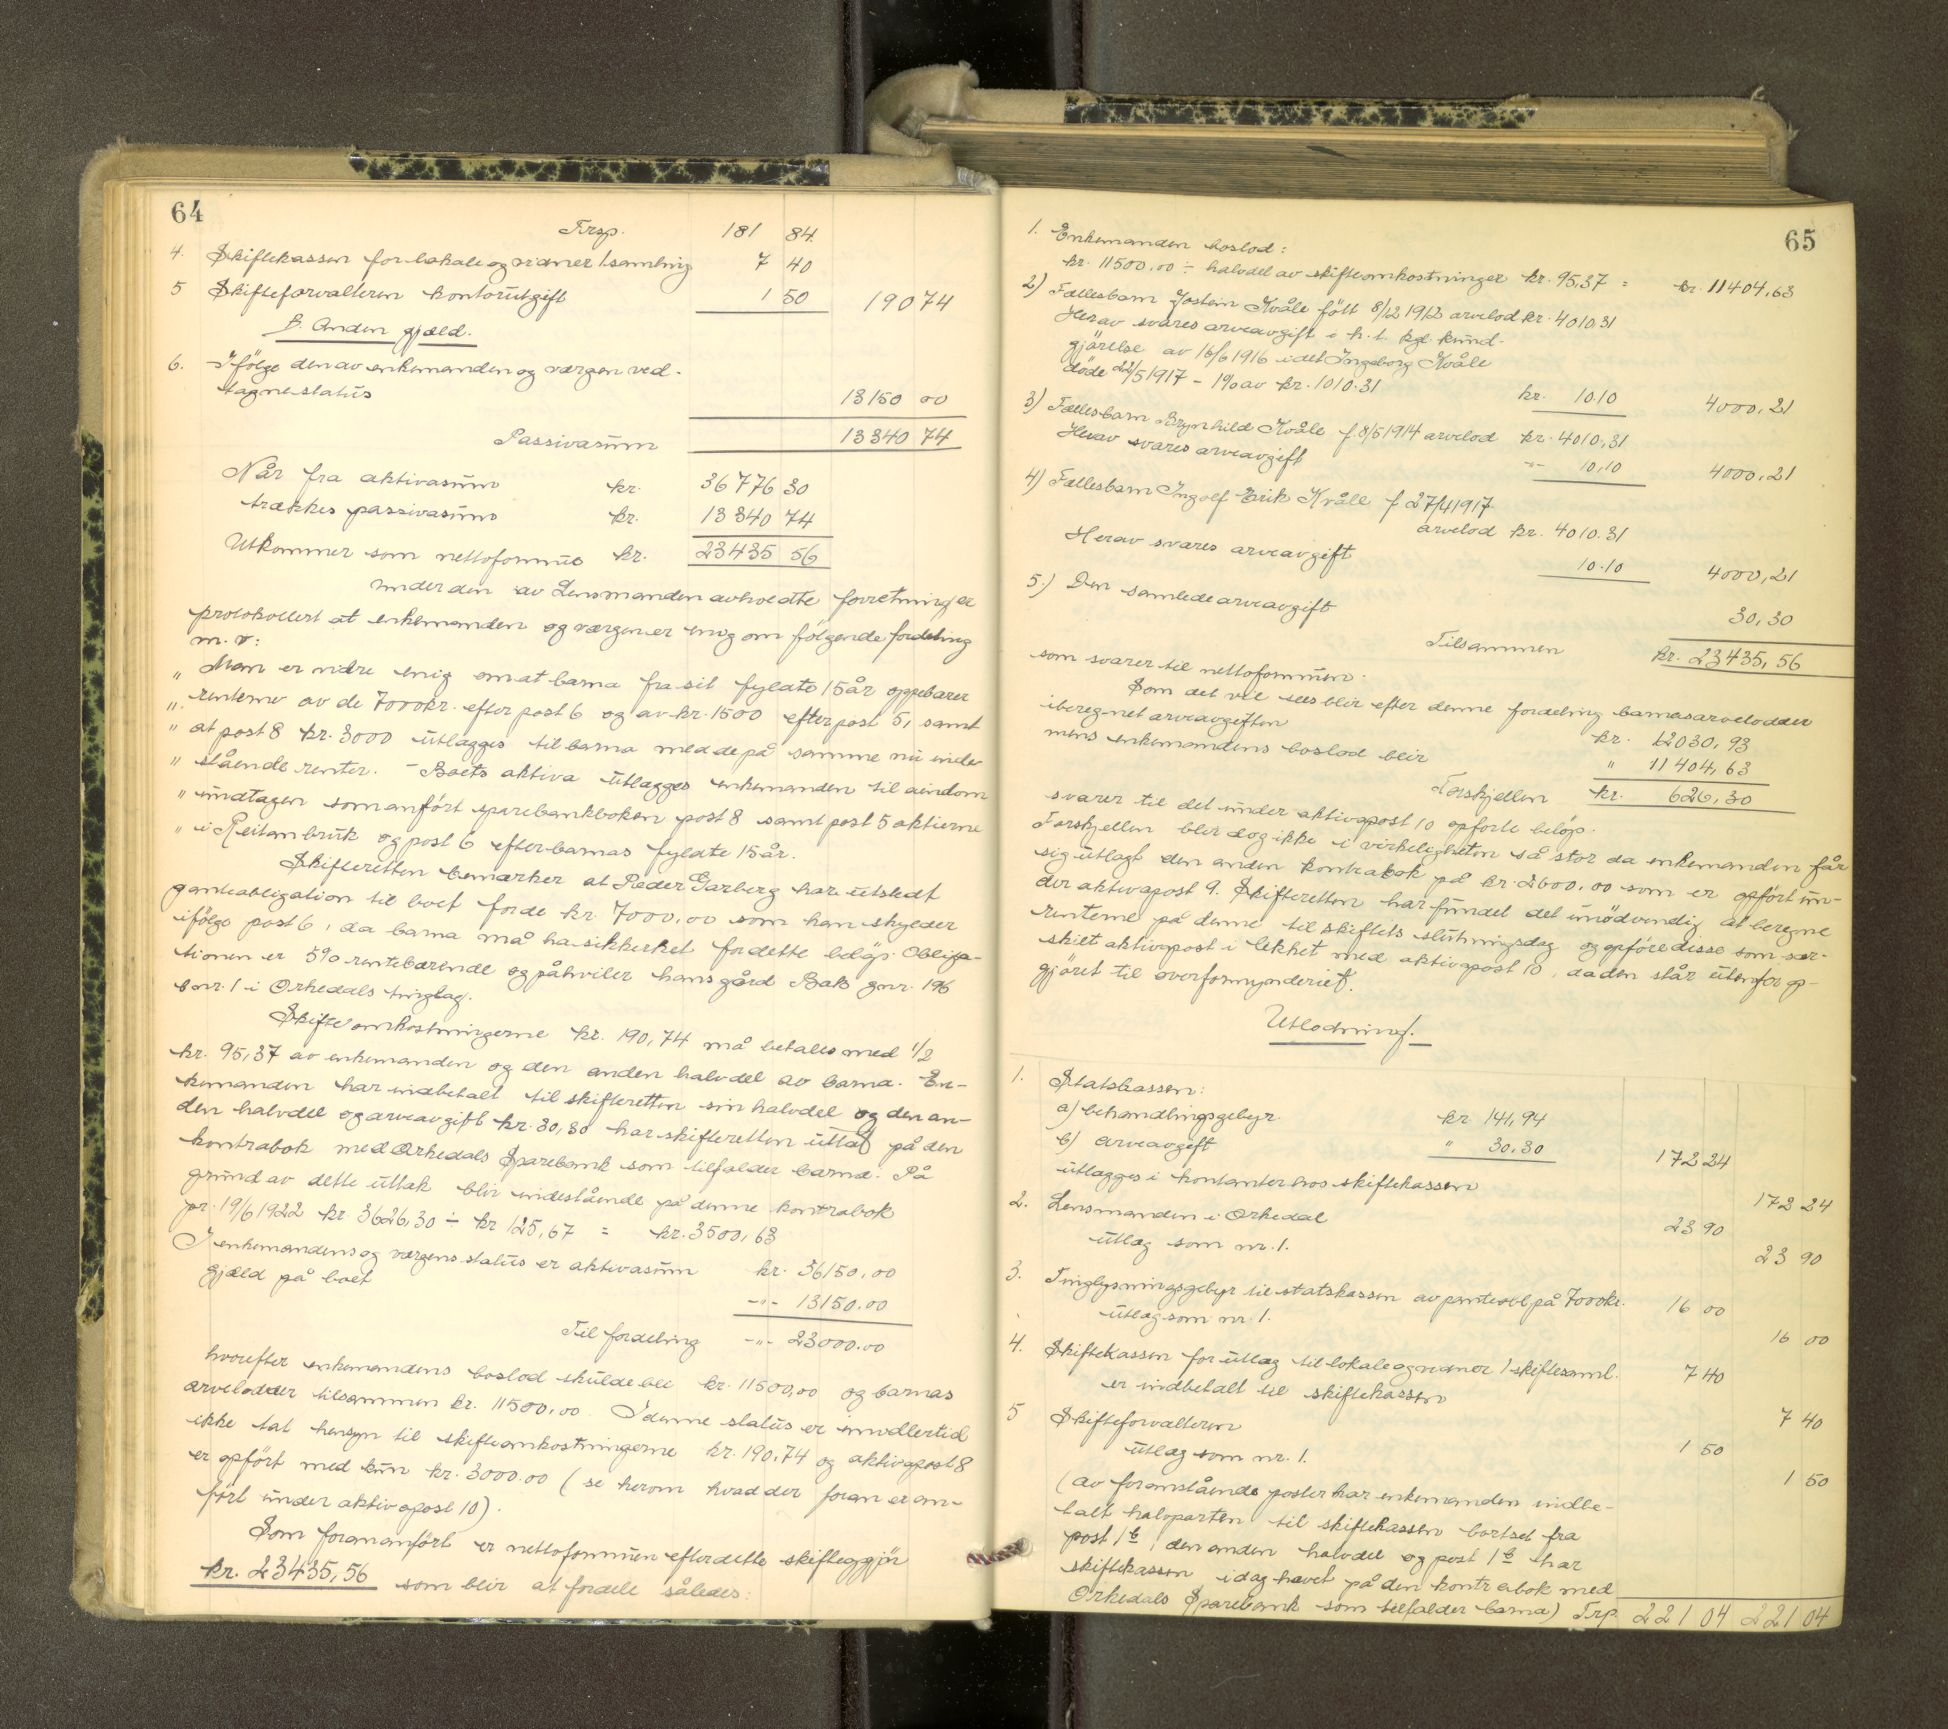 64
Trsp. 181 84.
4. Skiftekassen for lokale og vidner 1 samling 7 40
5 Skifteforvalteren kontorutgift 1 50 190 74
B. Anden gjæld.
6. Ifölge den av enkemanden og værgen ved-
tagne status 13150 00
Passivasum 13340 74
Når fra aktivasum kr. 36776 30
trækkes passivasum kr. 13340 74
Utkommer som nettoformue kr. 23435 56
under den av Lensmanden avholdte forretning er
protokollert at enkemanden og værgen er enig om fölgende fordeling
m.v:
„ Man er videre enig om at barna fra sit fyldte 15 år oppebærer
„ renterne av de 7000 kr. efter post 6 og av kr. 1500 efter post 5, samt
„ at post 8 kr. 3000 utlægges til barna med de på samme nu inde-
„ stående renter. – Boets aktiva utlægges enkemanden til eiendom
„ undtagen som anfört sparebankboken post 8 samt post 5 aktierne
„ i Reitan bruk og post 6 efter barnas fyldte 15 år.
Skifteretten bemærker at Peder Garberg har utstedt
panteobligation til boet for de kr. 7000,00 som han skylder
ifölge post 6, da barna må ha sikkerhet for dette belöp. Obliga-
tionen er 5% rentebærende og påhviler hans gård Bak gnr. 196
bnr. 1 i Orkedals tinglag.
Skifteomkostningerne kr. 190,74 må betales med 1/2
kr. 95,37 av enkemanden og den anden halvdel av barna. En-
kemanden har indbetalt til skifteretten sin halvdel og den an-
den halvdel og arveavgift kr. 30,30 har skifteretten uttat på den
kontrabok med Orkedals Sparebank som tilfalder barna. På
grund av dette uttak blir indestående på denne kontrabok
pr. 19/6 1922 kr. 3626,30 ÷ kr 125,67 = kr. 3500,63
I enkemandens og værgens status er aktivasum kr. 36150,00
gjæld på boet -"- 13150.00
Til fordeling -"- 23000.00
hvorefter enkemandens boslod skulde bli kr. 11500,00 og barnas
arvelodder tilsammen kr. 11500,00. I denne status er imidlertid
ikke tat hensyn til skifteomkostningerne kr. 190,74 og aktivapost 8
er opfört med kun kr. 3000.00 (se herom hvad der foran er an-
fört under aktivapost 10).
Som foran anfört er nettoformuen efter dette skifteopgjör
kr. 23435,56 som blir at fordele således:
65
1. Enkemanden boslod:
kr. 11500,00 ÷ halvdel av skifteomkostninger kr. 95,37 = kr. 11404,63
2) Fællesbarn Jostein Kvåle fött 8/12 1912 arvelod kr. 4010.31
Herav svares arveavgift i h.t. kgl. kund-
gjörelse av 16/6 1916 idet Ingeborg Kvåle
döde 22/5 1917 – 1% av kr. 1010.31 kr. 10.10 4000,21
3) Fællesbarn Brynhild Kvåle f 8/5 1914 arvelod kr. 4010,31
Herav svares arveavgift -"- 10,10 4000,21
4) Fællesbarn Ingolf Erik Kvåle f 27/4 1917
arvelod kr. 4010.31
Herav svares arveavgift 10.10 4000,21
5.) Den samlede arveavgift 30,30
Tilsammen kr. 23435,56
som svarer til nettoformuen.
Som det vil sees blir efter denne fordeling barnas arvelodder
iberegnet arveavgiften kr. 12030,93
mens enkemandens boslod blir " 11404,63
Forskjellen kr. 626,30
svarer til det under aktivapost 10 opförte belöp.
Forskjellen blir dog ikke i virkeligheten så stor da enkemanden får
sig utlagt den anden kontrabok på kr. 2600,00 som er opfört un-
der aktivapost 9. Skifteretten har fundet det unödvendig at beregne
renterne på denne til skiftets slutningsdag og opföre disse som sær-
skilt aktivapost i likhet med aktivapost 10, da den står utenfor op-
gjöret til overformynderiet.
Utlodning.
1. Statskassen:
a) behandlingsgebyr kr 141,94
b) arveavgift " 30.30 172 24
utlægges i kontanter hos skiftekassen 172 24
2. Lensmanden i Orkedal 23 90
utlæg som nr. 1. 23 90
3. Tinglysningsgebyr til statskassen av panteobl på 7000 kr. 16 00
utlæg som nr. 1. 16 00
4. Skiftekassen for utlæg til lokale og vidner 1 skiftesaml. 7 40
er indbetalt til skiftekassen 7 40
5 Skifteforvalteren 1 50
utlæg som nr. 1. 1 50
(av foranstående poster har enkemanden indbe-
talt halvparten til skiftekassen bortset fra
post 1 b, den anden halvdel og post 1 b har
skiftekassen idag hævet på den kontrabok med
Orkedals Sparebank som tilfalder barna) Trp. 221 04 221 04